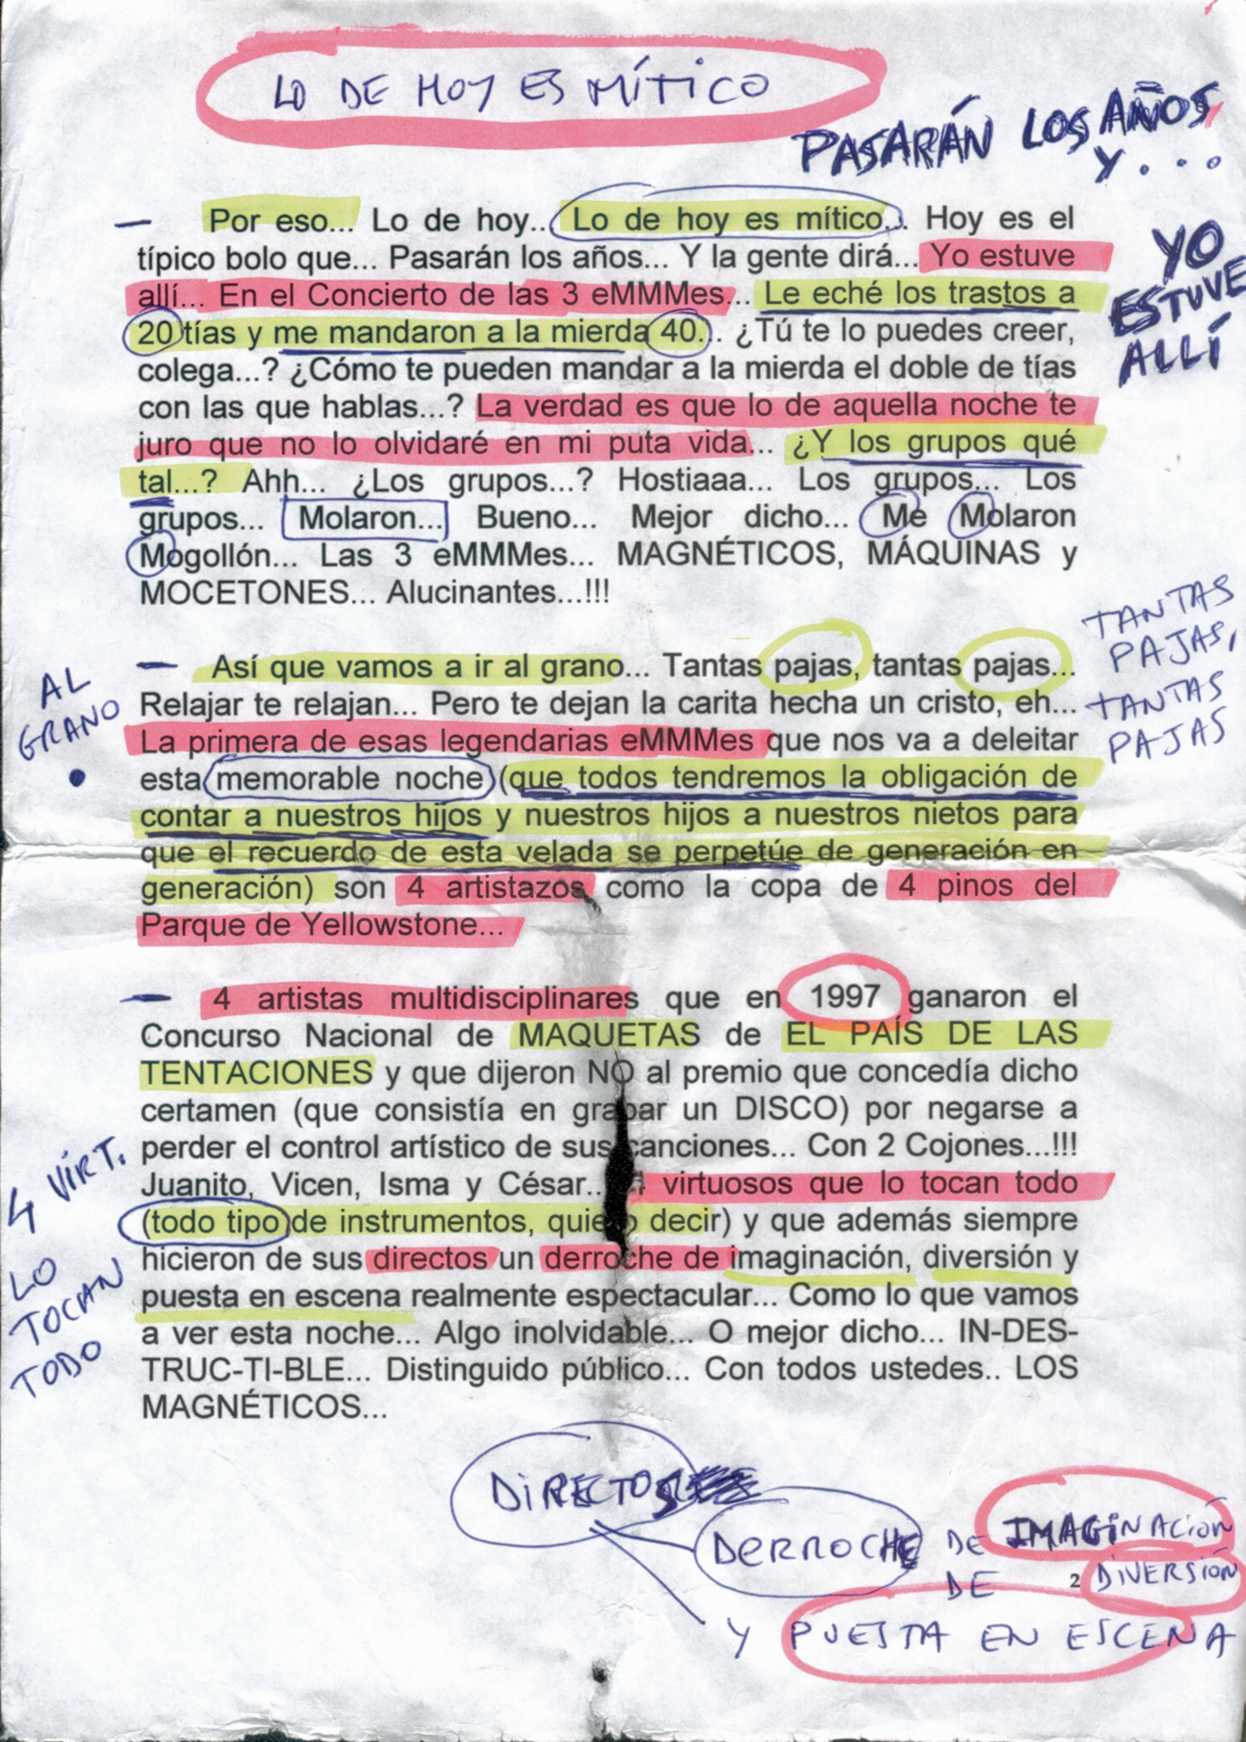 LO DE HOY ES MÍTICO
PASARÁN LOS AÑOS,
Y...
— Por eso... Lo de hoy... Lo de hoy es mítico... Hoy es el
típico bolo que... Pasarán los años... Y la gente dirá... Yo estuve
allí... En el Concierto de las 3 eMMMes... Le eché los trastos a
20 tías y me mandaron a la mierda 40... ¿Tú te lo puedes creer,
colega...? ¿Cómo te pueden mandar a la mierda el doble de tías
con las que hablas...? La verdad es que lo de aquella noche te
juro que no lo olvidaré en mi puta vida... ¿Y los grupos qué
tal...? Ahh... ¿Los grupos...? Hostiaaa... Los grupos... Los
grupos... Molaron... Bueno... Mejor dicho... Me Molaron
Mogollón... Las 3 eMMMes... MAGNÉTICOS, MÁQUINAS y
MOCETONES... Alucinantes...!!!
YO
ESTUVE
ALLÍ
— Así que vamos a ir al grano... Tantas pajas, tantas pajas...
Relajar te relajan... Pero te dejan la carita hecha un cristo, eh...
La primera de esas legendarias eMMMes que nos va a deleitar
esta memorable noche (que todos tendremos la obligación de
contar a nuestros hijos y nuestros hijos a nuestros nietos para
que el recuerdo de esta velada se perpetúe de generación en
generación) son 4 artistazos como la copa de 4 pinos del
Parque de Yellowstone...
AL
GRANO
TANTAS
PAJAS,
TANTAS
PAJAS
— 4 artistas multidisciplinares que en 1997 ganaron el
Concurso Nacional de MAQUETAS de EL PAÍS DE LAS
TENTACIONES y que dijeron NO al premio que concedía dicho
certamen (que consistía en grabar un DISCO) por negarse a
perder el control artístico de sus canciones... Con 2 Cojones...!!!
Juanito, Vicen, Isma y César... 4 virtuosos que lo tocan todo
(todo tipo de instrumentos, quiero decir) y que además siempre
hicieron de sus directos un derroche de imaginación, diversión y
puesta en escena realmente espectacular... Como lo que vamos
a ver esta noche... Algo inolvidable... O mejor dicho... IN-DES-
TRUC-TI-BLE... Distinguido público... Con todos ustedes.. LOS
MAGNÉTICOS...
4 VIRT.
LO
TOCAN
TODO
DIRECTOS
DERROCHE DE IMAGINACIÓN
DE DIVERSIÓN
2
Y PUESTA EN ESCENA